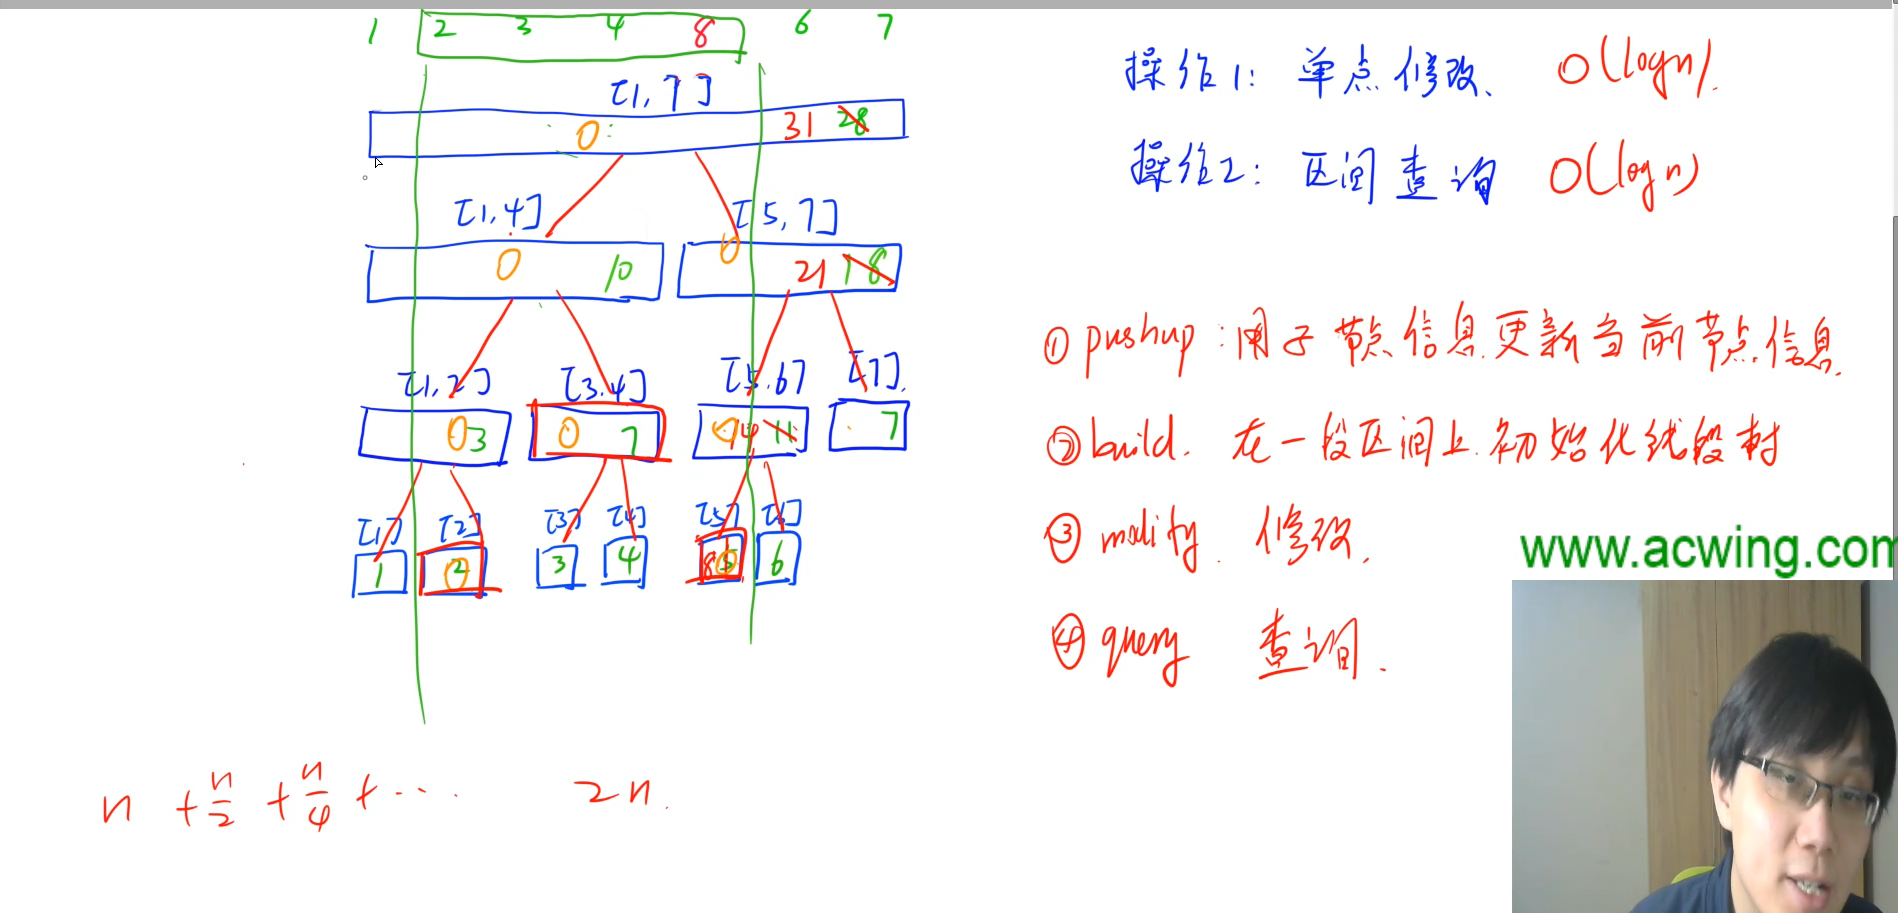 1 2 3 4 8 6 7
[1,7]
0 31 28
[1,4] [5,7]
0 10 0 21 18
[1,2] [3,4] [5,6] [7]
0 3 0 7 0 14 11 7
[1] [2] [3] [4] [5] [6]
1 2 0 3 4 8 5 0 6
n + n/2 + n/4 + ... 2n.
操作1: 单点修改. O(logn).
操作2: 区间查询 O(logn)
① pushup: 用子节点信息更新当前节点信息.
② build. 在一段区间上初始化线段树
③ modify. 修改.
④ query 查询.
www.acwing.com